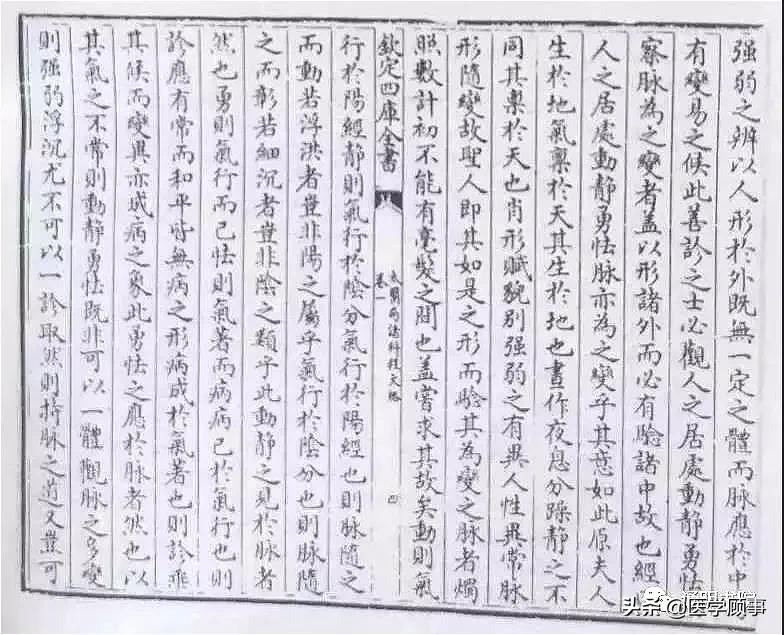 強弱之辨以人形於外既無一定之體而脉應於中
有變易之候此善診之士必觀人之居處動靜勇怯
察脉為之變者蓋以形諸外而必有驗諸中故也經
人之居處動靜勇怯脉亦為之變乎其意如此原夫人
生於地氣稟於天其生於地也晝作夜息分躁靜之不
同其稟於天也肖形賦貌别强弱之有異人性異常脉
形隨變故聖人即其如是之形而驗其為變之脉者燭
照數計初不能有毫髮之間也蓋嘗求其故矣動則氣
欽定四庫全書
卷一
太醫局諸科程文格
四
行於陽經靜則氣行於陰分氣行於陽經也則脉隨之
而動若浮洪者豈非陽之屬乎氣行於陰分也則脉隨
之而彰若細沉者豈非陰之類乎此動靜之見於脉者
然也勇則氣行而已怯則氣著而病病已於氣行也則
診應有常而和平皆無病之形病成於氣著也則診乖
其候而變異亦成病之象此勇怯之應於脉者然也以
其氣之不常則動靜勇怯既非可以一體觀脉之多變
則强弱浮沉尤不可以一診取然則持脉之道又豈可
头条@医学顾事